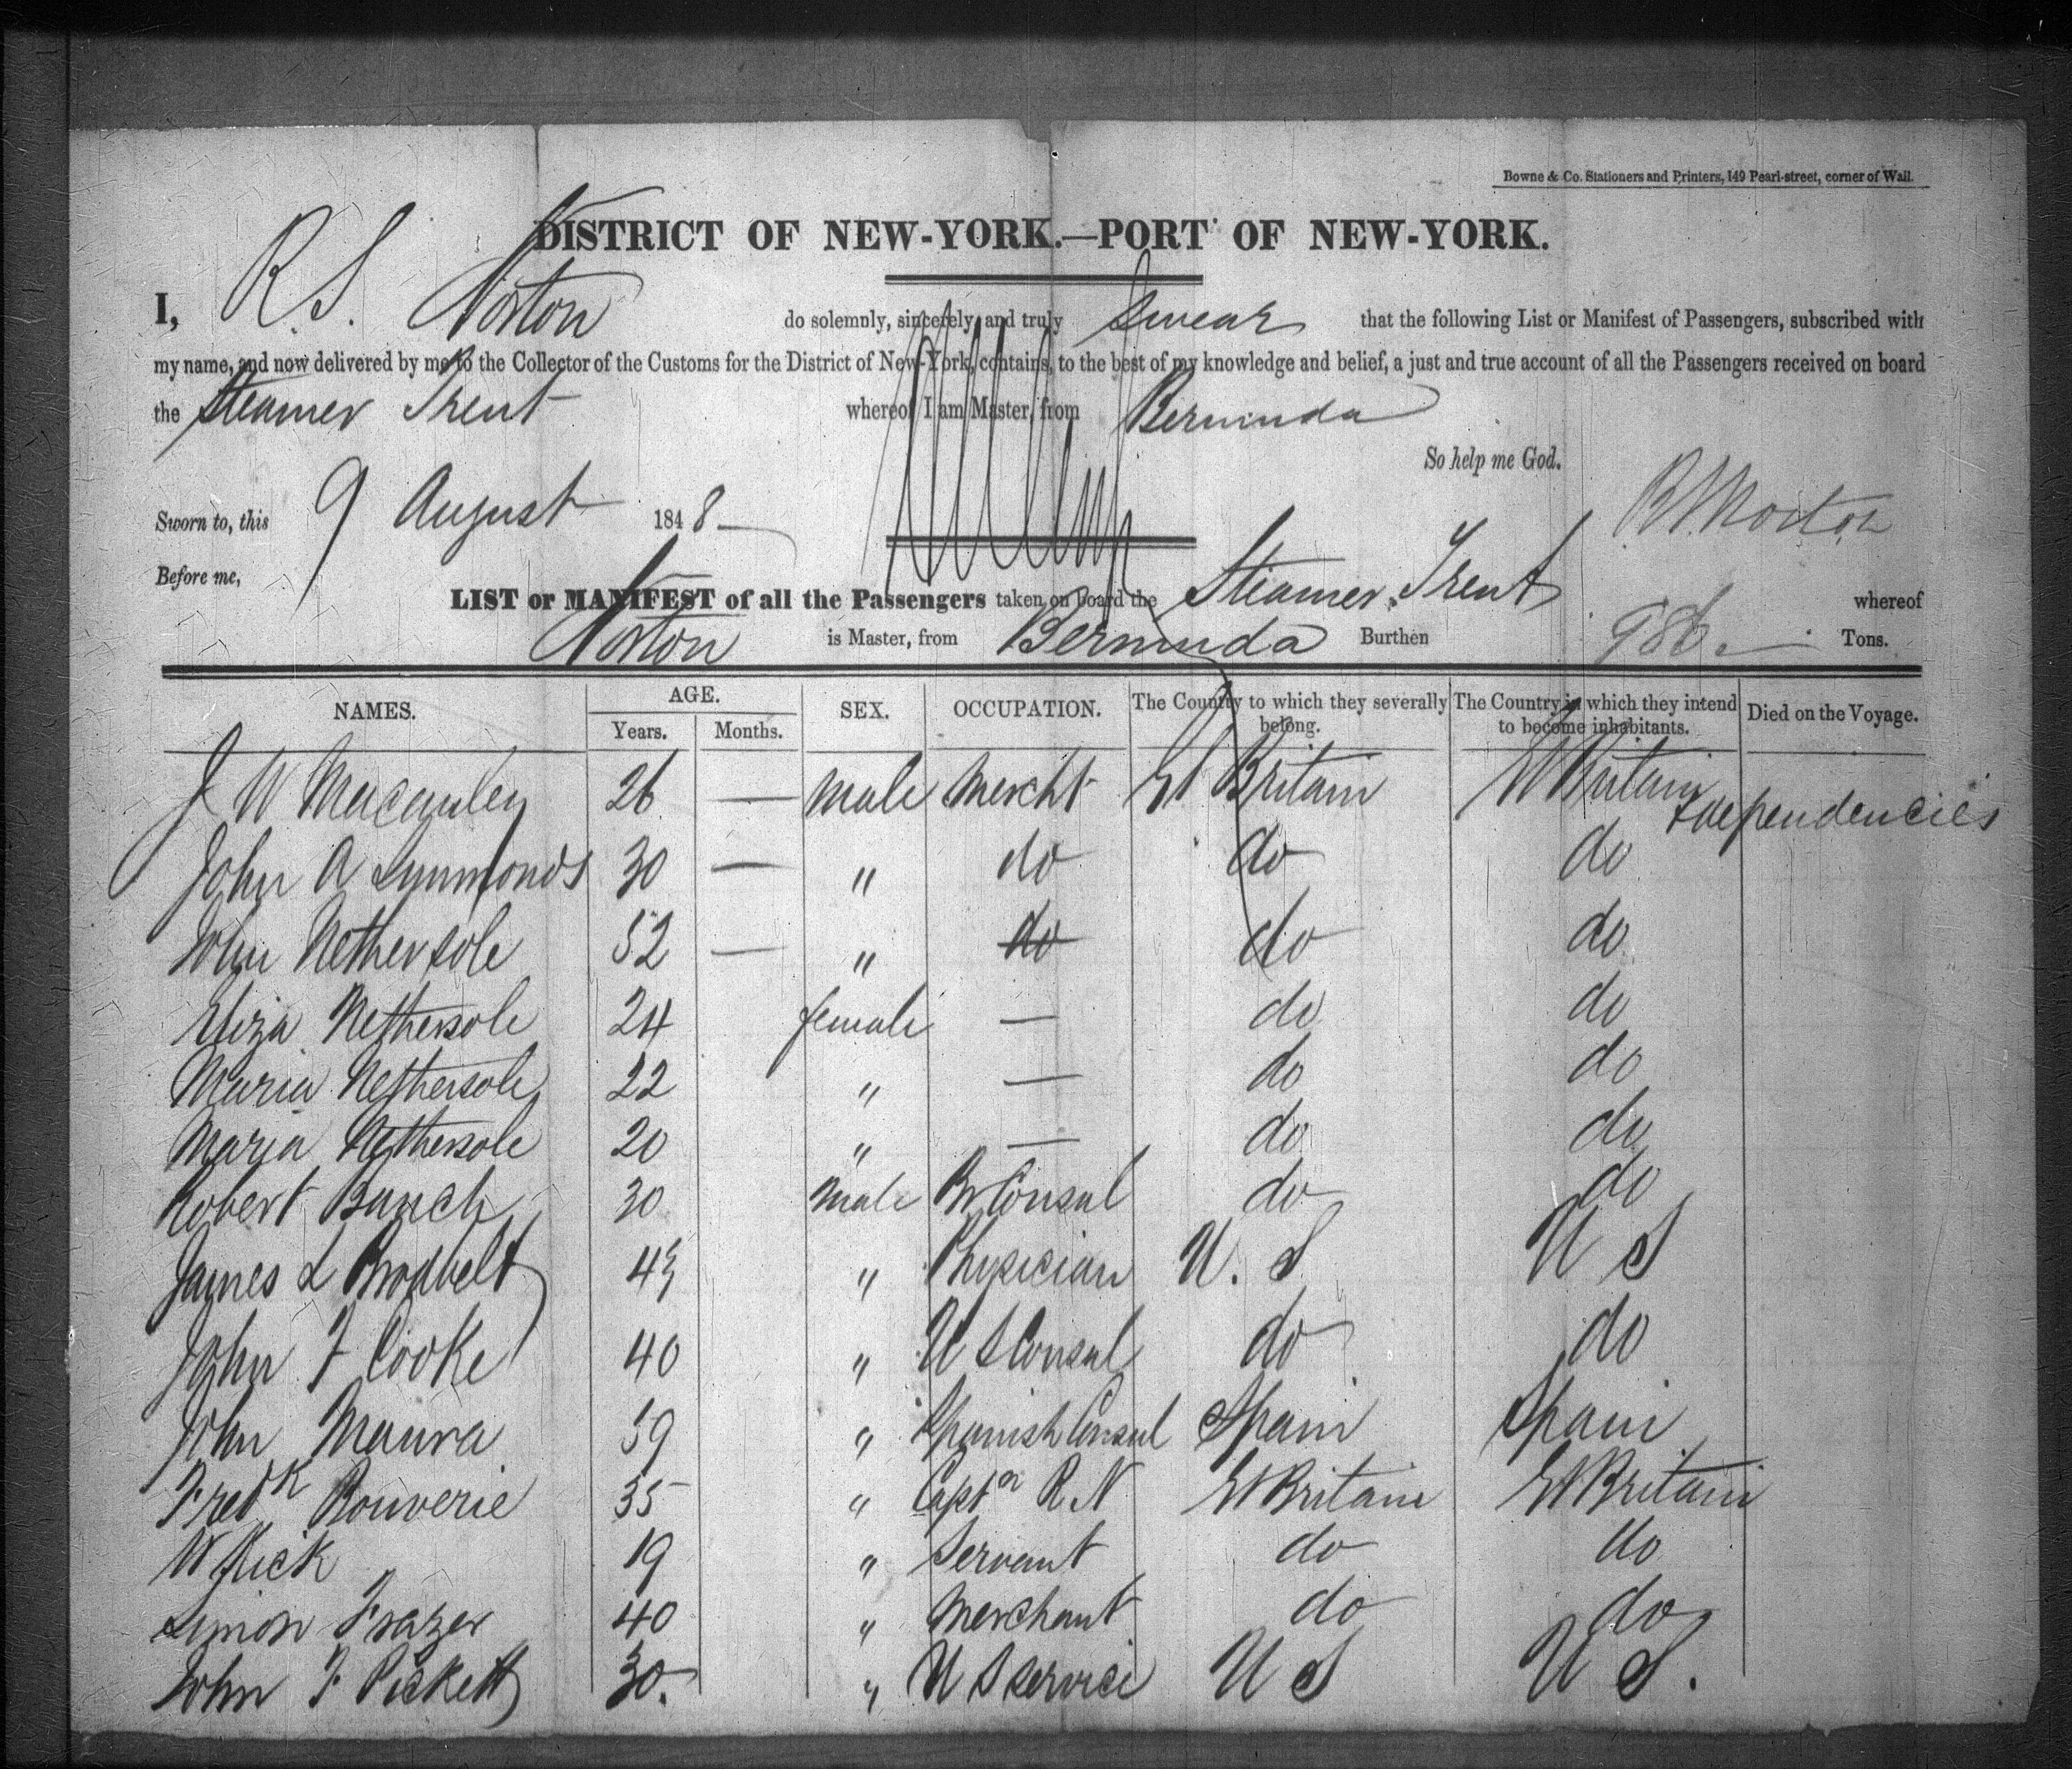 Bowne & Co. Stationers and Printers, 149 Pearl-street, corner of Wall.
DISTRICT OF NEW-YORK.—PORT OF NEW-YORK.
I, R. S. Norton do solemnly, sincerely, and truly swear that the following List or Manifest of Passengers, subscribed with
my name, and now delivered by me to the Collector of the Customs for the District of New-York, contains, to the best of my knowledge and belief, a just and true account of all the Passengers received on board
the Steamer Trent whereof I am Master, from Bermuda
So help me God.
Sworn to, this 9 August 1848
Before me,
LIST or MANIFEST of all the Passengers taken on board the Steamer Trent whereof
Norton is Master, from Bermuda Burthen 986 Tons.
NAMES. AGE. SEX. OCCUPATION. The Country to which they severally belong. The Country in which they intend to become inhabitants. Died on the Voyage.
Years. Months.
J W Macauley 26 — male Mercht Gt Britain Gt Britain & dependencies
John A Symmonds 30 — " do do do
John Nethersole 52 — " do do do
Eliza Nethersole 24 female — do do
Maria Nethersole 22 " — do do
Maria Nethersole 20 " — do do
Robert Bunch 30 male Br Consul do do
James L Brodbelt 43 " Physician U. S U S
John F Cooke 40 " U S Consul do do
John Maura 59 " Spanish Consul Spain Spain
Fredk Bouverie 35 " Captn R N Gt Britain Gt Britain
W 19 " Servant do do
Simon Frazer 40 " Merchant do do
John F Pickett 30. " U S service U S U S.